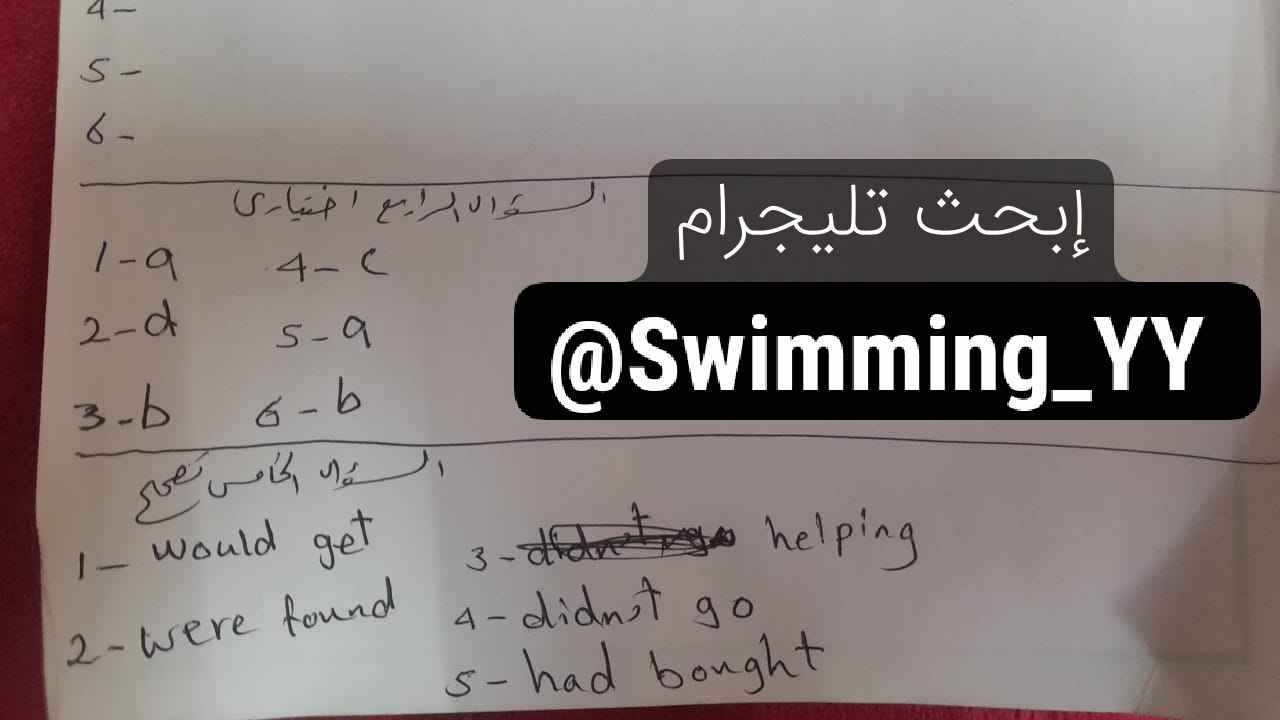 4-
5-
6-
السؤال الرابع اختياري
1-a 4-c
2-d 5-a
3-b 6-b
إبحث تليجرام
@Swimming_YY
السؤال الخامس تصحيح
1- would get
2- were found
3- didn't go helping
4- didn't go
5- had bought